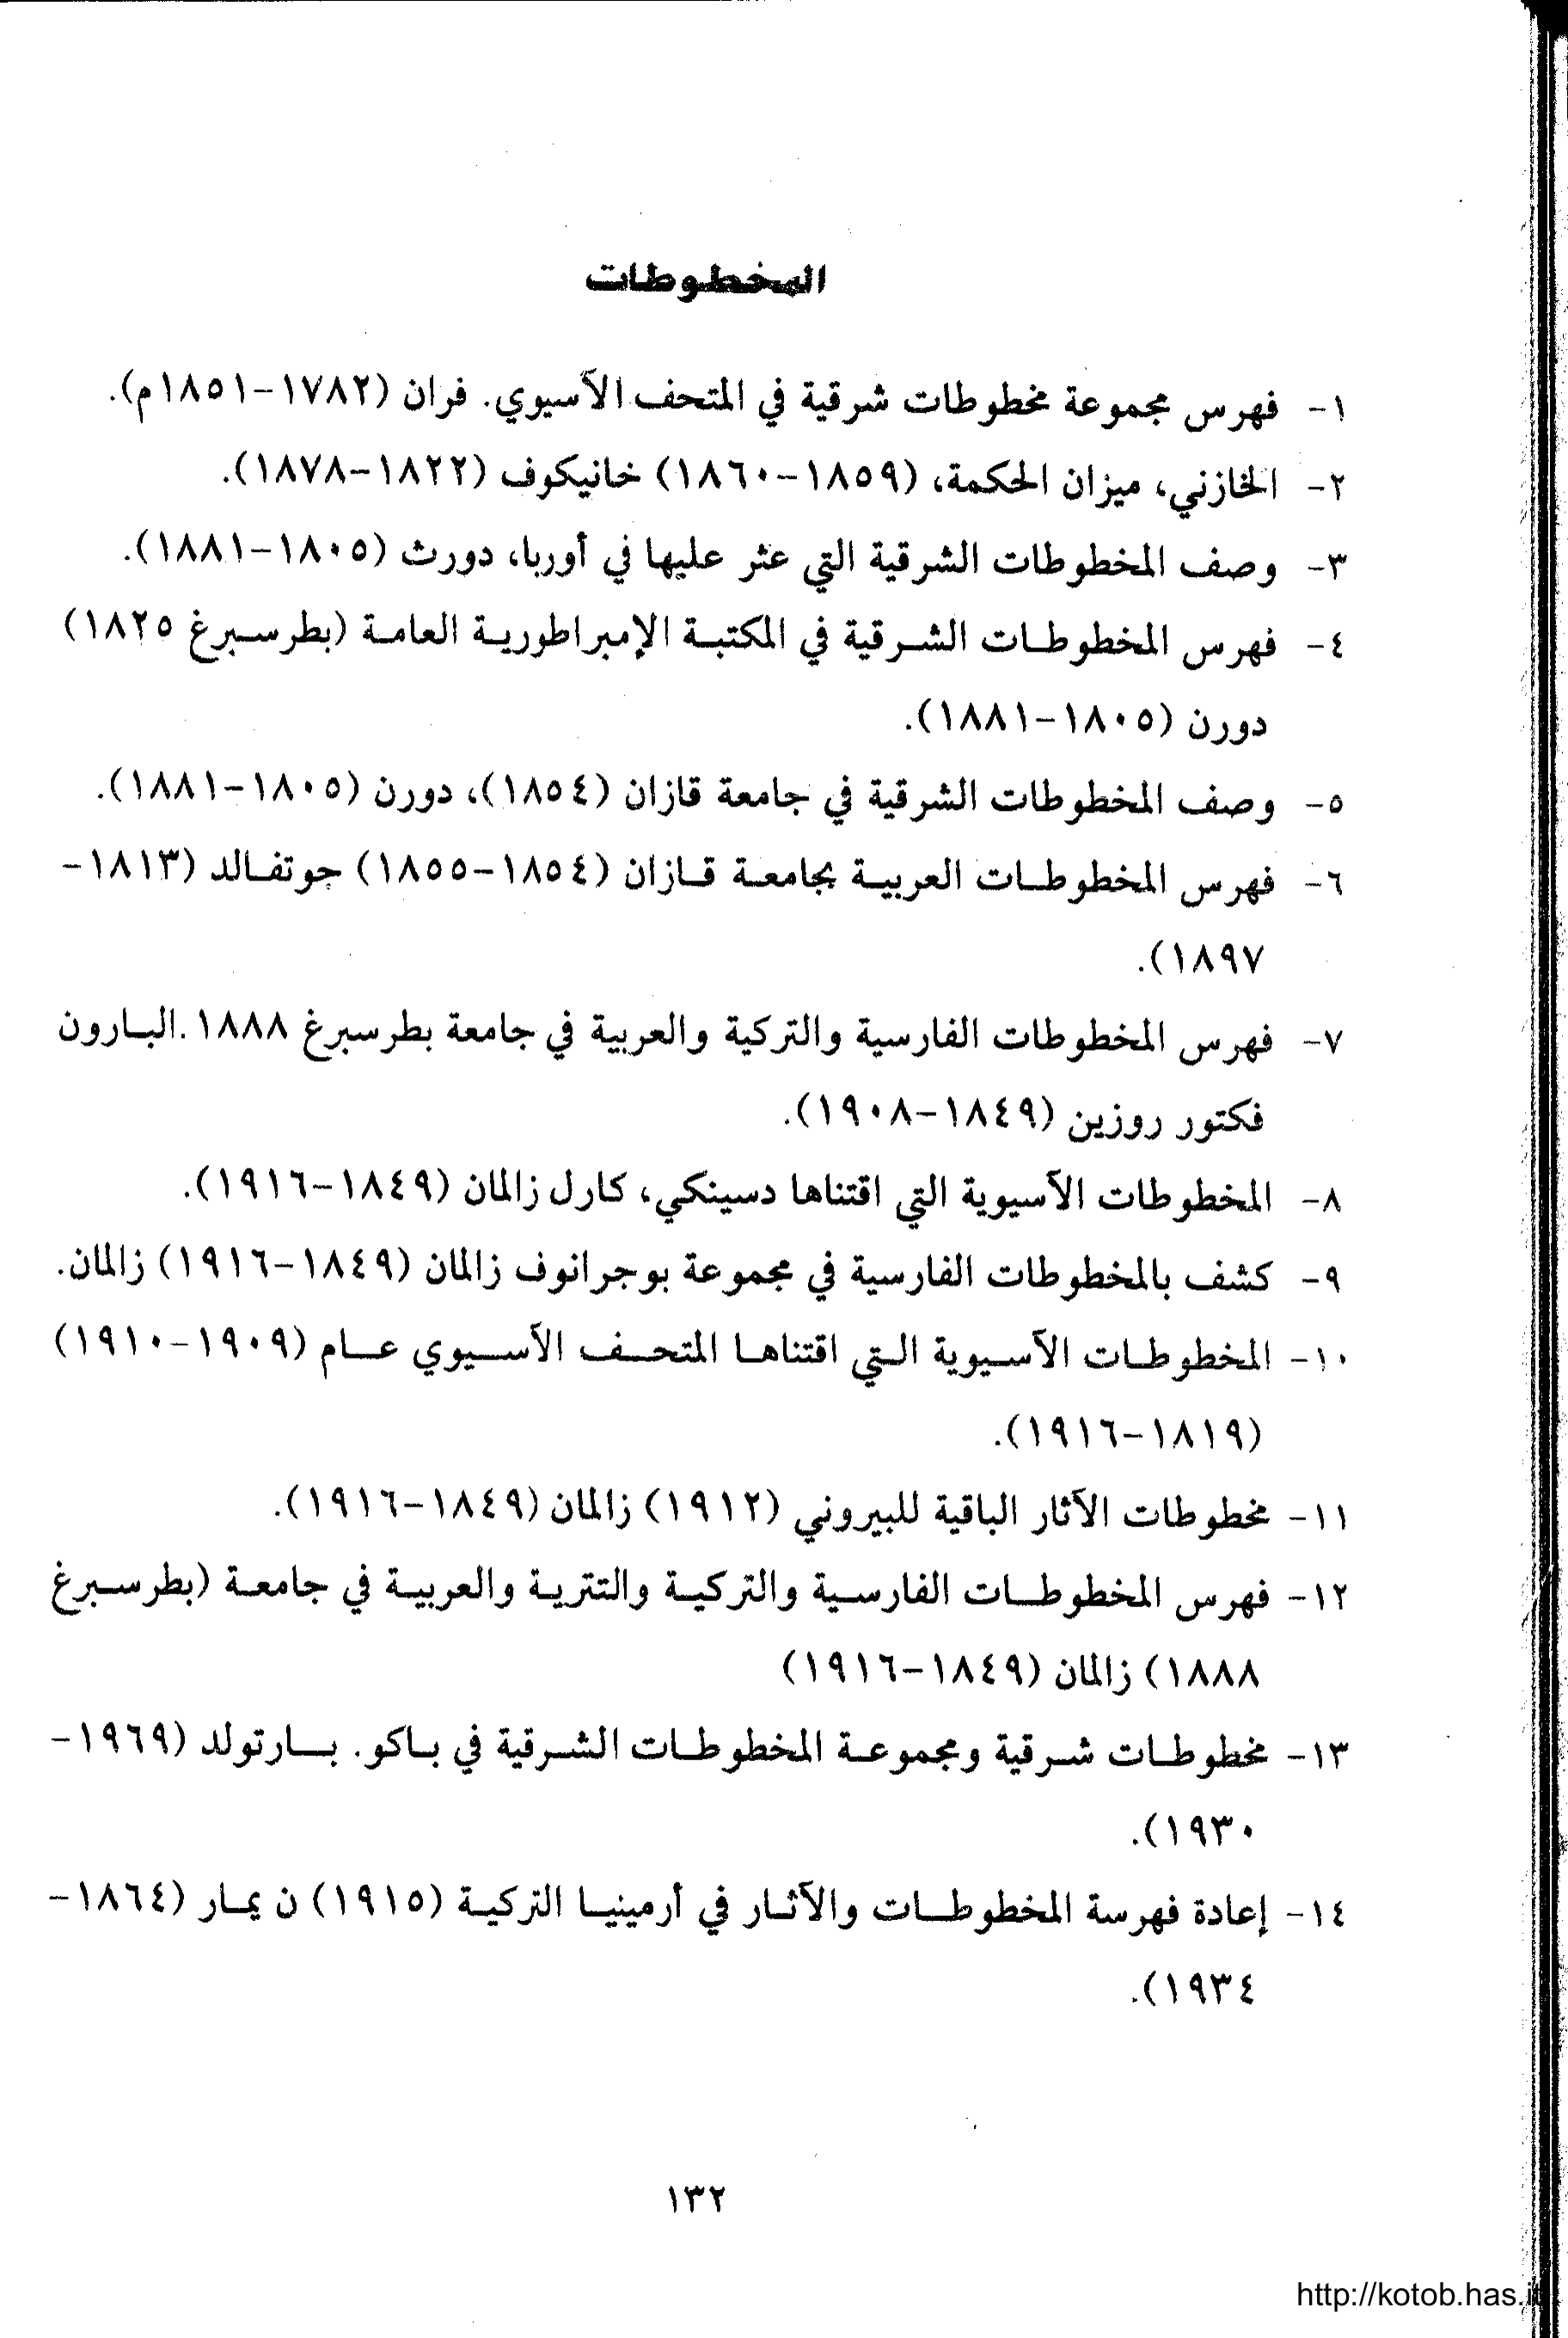 المخطوطات
١- فهرس مجموعة مخطوطات شرقية في المتحف الآسيوي. فران (١٧٨٢-١٨٥١م).
٢- الخازني، ميزان الحكمة، (١٨٥٩-١٨٦٠) خانيكوف (١٨٢٢-١٨٧٨).
٣- وصف المخطوطات الشرقية التي عثر عليها في أوربا، دورث (١٨٠٥-١٨٨١).
٤- فهرس المخطوطات الشرقية في المكتبة الإمبراطورية العامة (بطرسبرغ ١٨٢٥)
دورن (١٨٠٥-١٨٨١).
٥- وصف المخطوطات الشرقية في جامعة قازان (١٨٥٤)، دورن (١٨٠٥-١٨٨١).
٦- فهرس المخطوطات العربية بجامعة قازان (١٨٥٤-١٨٥٥) جوتفالد (١٨١٣-
١٨٩٧).
٧- فهرس المخطوطات الفارسية والتركية والعربية في جامعة بطرسبرغ ١٨٨٨ .البارون
فكتور روزين (١٨٤٩-١٩٠٨).
٨- المخطوطات الآسيوية التي اقتناها دسينكي، كارل زالمان (١٨٤٩-١٩١٦).
٩- كشف بالمخطوطات الفارسية في مجموعة بوجرانوف زالمان (١٨٤٩-١٩١٦) زالمان.
١٠- المخطوطات الآسيوية التي اقتناها المتحف الآسيوي عام (١٩٠٩-١٩١٠)
(١٨١٩-١٩١٦).
١١- مخطوطات الآثار الباقية للبيروني (١٩١٢) زالمان (١٨٤٩-١٩١٦).
١٢- فهرس المخطوطات الفارسية والتركية والتترية والعربية في جامعة (بطرسبرغ
١٨٨٨) زالمان (١٨٤٩-١٩١٦)
١٣- مخطوطات شرقية ومجموعة المخطوطات الشرقية في باكو. بارتولد (١٩٦٩-
١٩٣٠).
١٤- إعادة فهرسة المخطوطات والآثار في أرمينيا التركية (١٩١٥) ن يمار (١٨٦٤-
١٩٣٤).
١٣٢
http://kotob.has.it